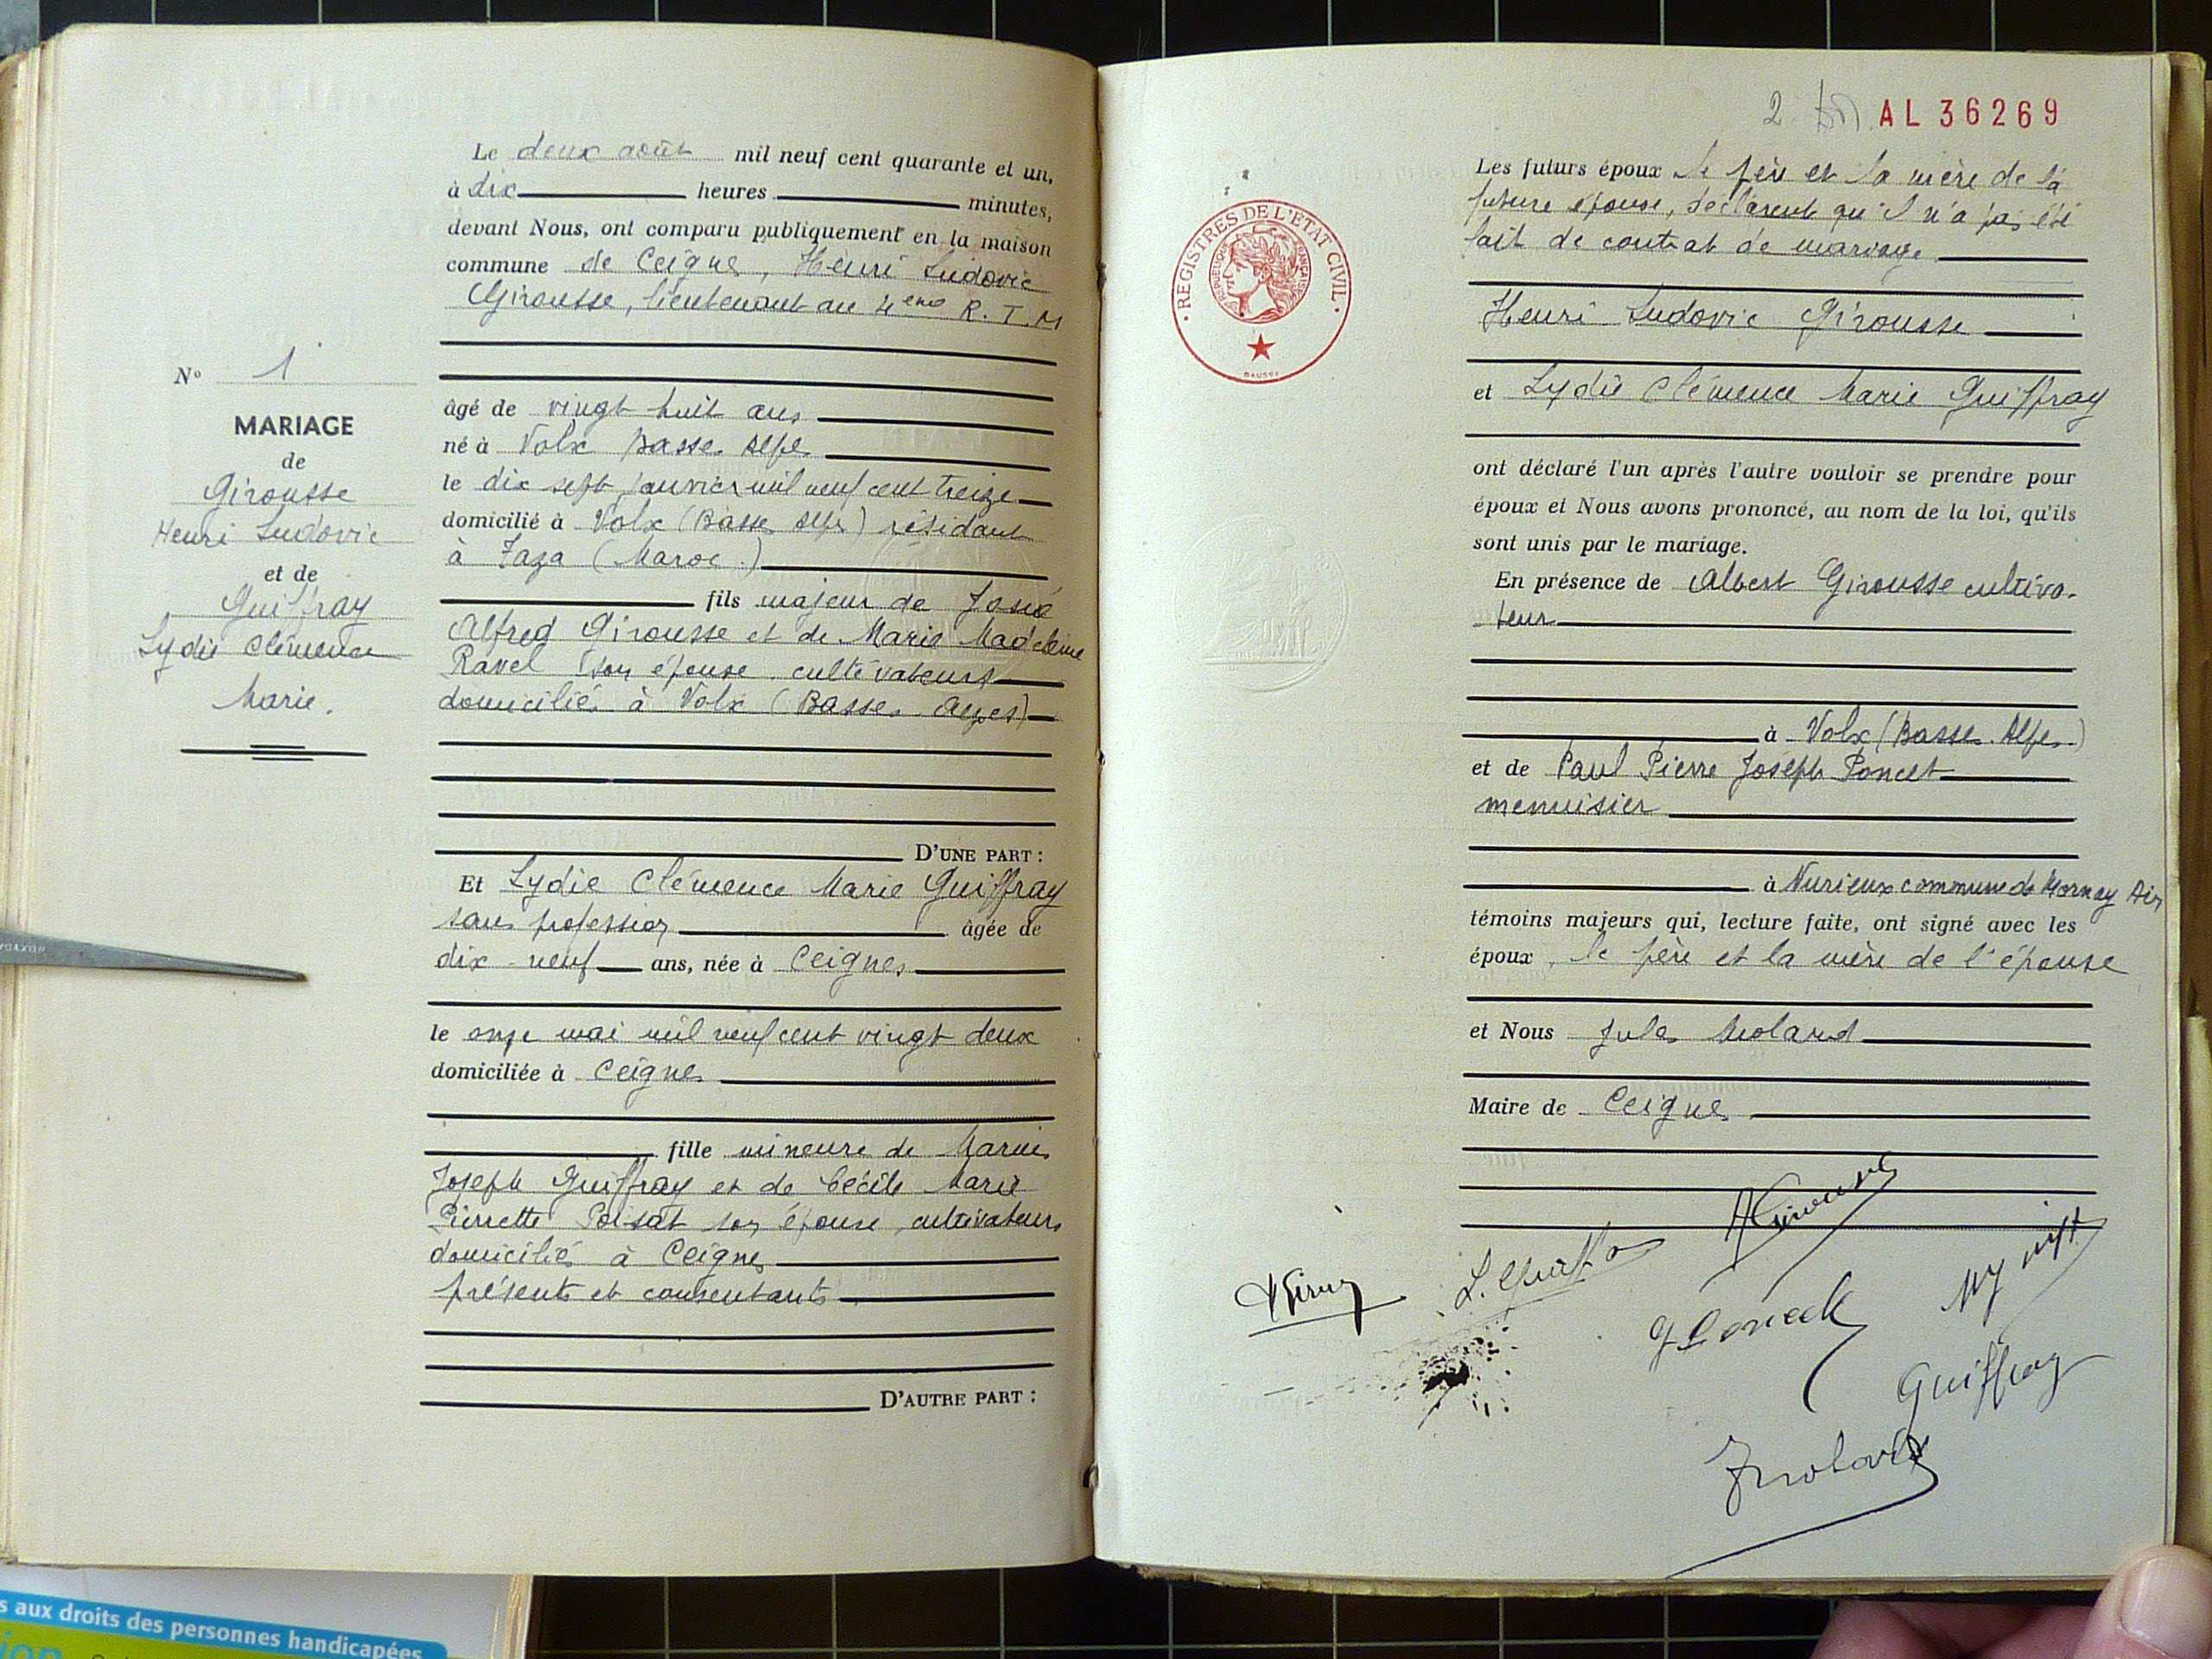 Le deux août mil neuf cent quarante et un,
à dix heures minutes,
devant Nous, ont comparu publiquement en la maison
commune de Ceignes, Henri Ludovic
Girousse, lieutenant au 4ème R. T. M
N° 1
MARIAGE
de
Girousse
Henri Ludovic
et de
Guiffray
Lydie Clémence
Marie.
âgé de vingt huit ans
né à Volx Basses Alpes
le dix sept janvier mil neuf cent treize
domicilié à Volx (Basses Alpes) résidant
à Taza (Maroc.)
fils majeur de Josué
Alfred Girousse et de Marie Madeleine
Ravel son épouse cultivateurs
domiciliés à Volx (Basses Alpes)
D'UNE PART :
Et Lydie Clémence Marie Guiffray
sans profession âgée de
dix-neuf ans, née à Ceignes
le onze mai mil neuf cent vingt deux
domiciliée à Ceignes
fille mineure de Marius
Joseph Guiffray et de Cécile Marie
Pierrette Poisat son épouse, cultivateurs
domiciliés à Ceignes
présents et consentants
D'AUTRE PART :
2 AL 36269
REGISTRES DE L'ETAT CIVIL
REPUBLIQUE FRANÇAISE
Les futurs époux le père et la mère de la
future épouse, déclarent qu'il n'a pas été
fait de contrat de mariage
Henri Ludovic Girousse
et Lydie Clémence Marie Guiffray
ont déclaré l'un après l'autre vouloir se prendre pour
époux et Nous avons prononcé, au nom de la loi, qu'ils
sont unis par le mariage.
En présence de Albert Girousse cultiva-
teur
à Volx (Basses Alpes)
et de Paul Pierre Joseph Poncet
menuisier
à Nurieux commune de Mornay Ain
témoins majeurs qui, lecture faite, ont signé avec les
époux, le père et la mère de l'épouse
et Nous Jules Molard
Maire de Ceignes
AGirousse
L. Guiffra
Guiffray
JMolard
s aux droits des personnes handicapées
ion